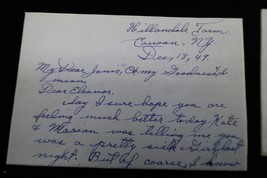 Hillandale Farm.
Canaan, N.Y.
Dec, 18, 49.
My Dear Janis, "Oh my Goodness" I
mean,
Dear Eleanor:
Say I sure hope you are
feeling much better today, Kate
& Marian was telling me you
was a pretty sick Girl last
night. But of coarse, I know